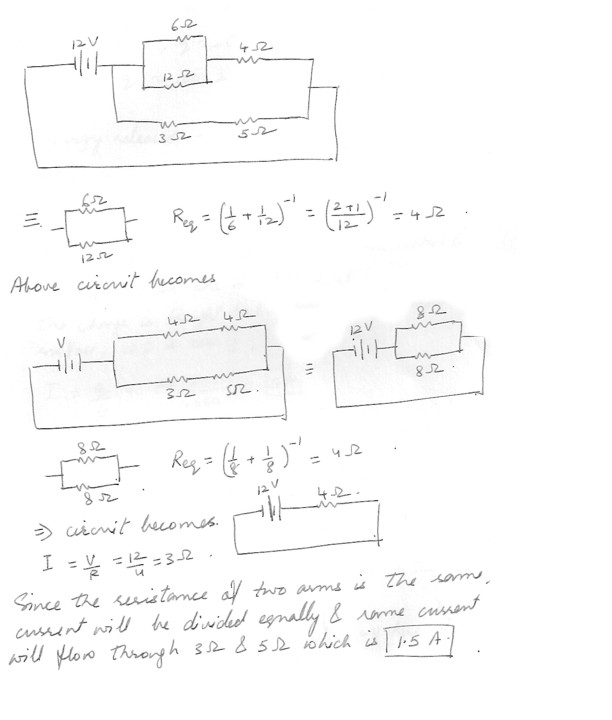 6Ω
12 V
4Ω
12 Ω
3Ω 5Ω
≡ 6Ω
12Ω
Req = (1/6 + 1/12)⁻¹ = (2+1/12)⁻¹ = 4 Ω .
Above circuit becomes
4Ω 4Ω
V
3Ω 5Ω .
≡
12 V
8Ω
8Ω .
8Ω
8 Ω
Req = (1/8 + 1/8)⁻¹ = 4Ω .
⇒ circuit becomes.
12 V 4Ω .
I = V/R = 12/4 = 3Ω .
Since the resistance of two arms is the same,
current will be divided equally & same current
will flow through 3Ω & 5Ω which is 1.5 A. .